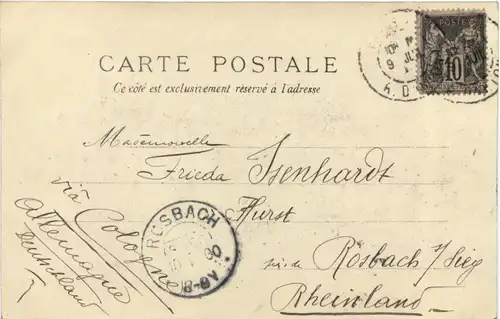 POSTE
10
CARTE POSTALE
Ce côté est exclusivement réservé à l'adresse
Mademoiselle
Frieda Isenhardt
Hurst
Rosbach / Sieg
Rheinland
via Cologne
Allemagne
Deutschland
ROSBACH